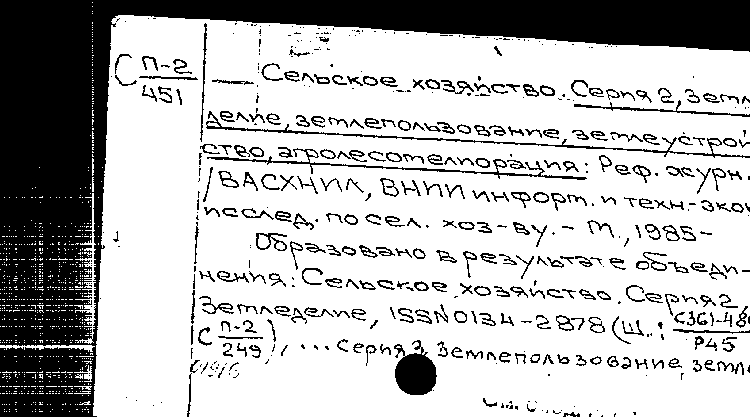 С П-2/451
— Сельское хозяйство. Серия 2, Земле
делие, землепользование, землеустрой
ство, агролесомелиорация: Реф. журн.
/ВАСХНИЛ, ВНИИ информ. и техн.-экон
исслед. по сел. хоз-ву. – М., 1985–
Образовано в результате объеди-
нения: Сельское хозяйство. Серия 2,
Земледелие, ISSN 0134-2878 (Ш.:
С П-2/249), ... Серия 3, Землепользование, земле